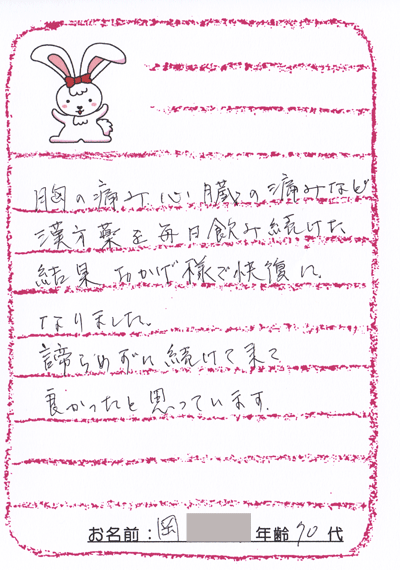 胸の痛み心臓の痛みなど
漢方薬を毎日飲み続けた
結果おかげ様で快復に
なりました。
諦らめずに続けて来て
良かったと思っています。
お名前：岡 年齢70代